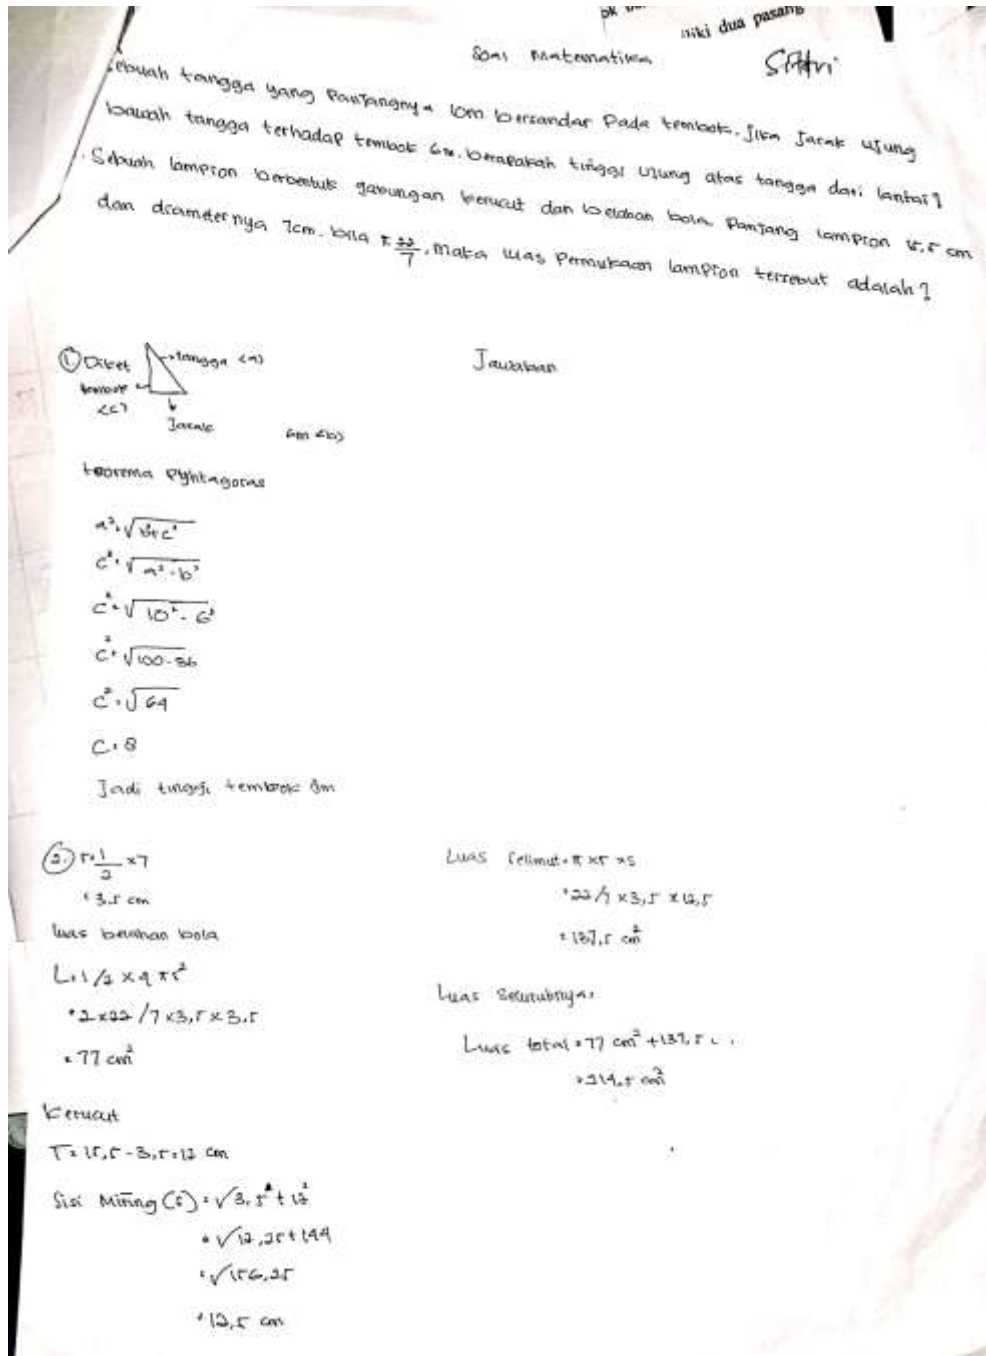 niki dua pasang
Soal Matematika
Safitri
Sebuah tangga yang Panjangnya 10m bersandar Pada tembok. Jika Jarak ujung
bawah tangga terhadap tembok 6m. berapakah tinggi ujung atas tangga dari lantai?
Sebuah lampion berbentuk gabungan kerucut dan belahan bola. Panjang lampion 15,5 cm
dan diameternya 7cm. bila π 22/7, maka luas Permukaan lampion tersebut adalah?
Jawaban
① Diket
tangga <a>
tembok
<c>
Jarak 6m <b>
teorema Pyhtagoras
a²=√b²+c²
c²=√a²-b²
c²=√10²-6²
c²=√100-36
c²=√64
C=8
Jadi tinggi tembok 8m
②. r=1/2 x7
=3,5 cm
luas belahan bola
L=1/2 x 4 πr²
=2x22/7 x3,5 x3,5
=77 cm²
kerucut
T=15,5-3,5=12 cm
Sisi Miring (s)=√3,5²+12²
=√12,25+144
=√156,25
=12,5 cm
Luas Selimut=π xr xs
=22/7 x3,5 x12,5
=137,5 cm²
Luas Seluruhnya=
Luas total=77 cm²+137,5
=214,5 cm²